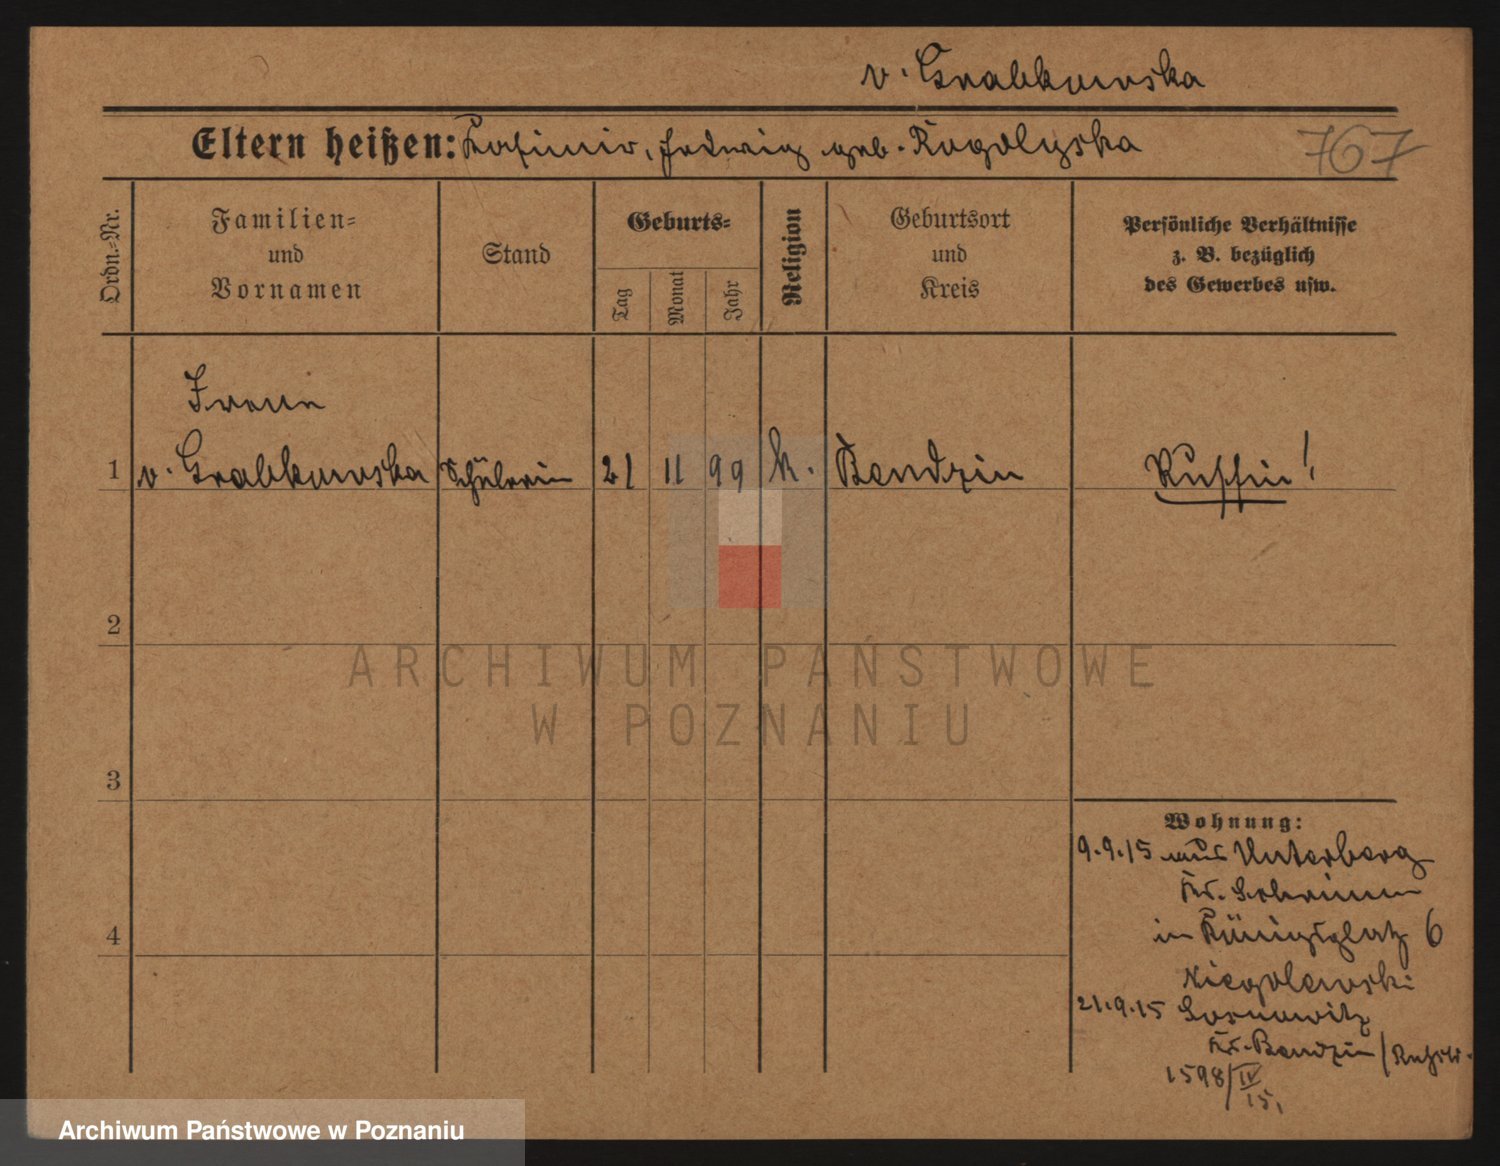 v. Grabkowska
Eltern heißen: Kasimir, Hedwig geb. Rogolyska
767
Ordn.-Nr.
Familien-
und
Vornamen
Stand
Geburts-
Tag
Monat
Jahr
Religion
Geburtsort
und
Kreis
Persönliche Verhältnisse
z. B. bezüglich
des Gewerbes usw.
Irene
1 v. Grabkowska Schülerin 21 11 99 k. Bendzin Russin!
2
ARCHIWUM PAŃSTWOWE
W POZNANIU
3
Wohnung:
9.9.15 aus Unterberg
Kr. Schrimm
4
in Königsplatz 6
Niegolewski
21.9.15 Sosnowitz
Kr. Bendzin
1598/IV
15.
Archiwum Państwowe w Poznaniu